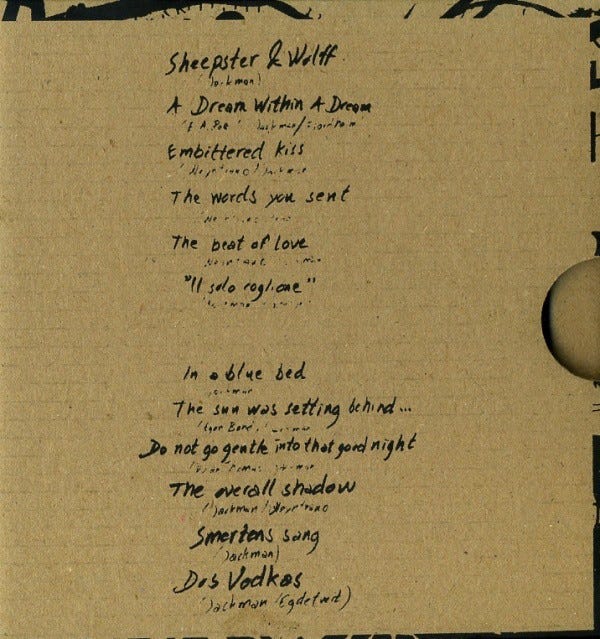 Sheepster & Wolff
(Jackman)
A Dream Within A Dream
Embittered kiss
The words you sent
The beat of love
"Il solo coglione"
In a blue bed
Jackman
The sun was setting behind...
Do not go gentle into that good night
The overall shadow
(Jackman
Smertens sang
(Jackman)
Dos Vodkas
(Jackman/Egdetveit)